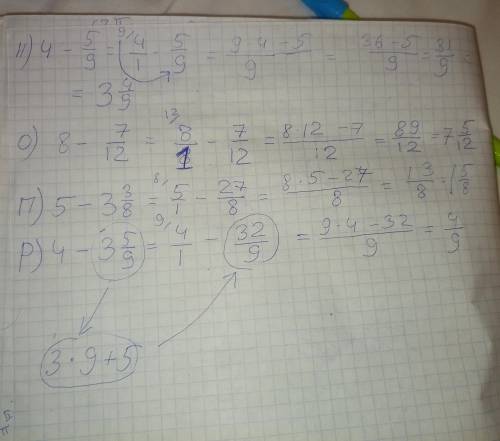 н) 4 - 5/9 = 9/ 4/1 - 5/9 = (9·4-5)/9 = (36-5)/9 = 31/9 =
= 3 4/9
о) 8 - 7/12 = 8/1 - 7/12 = (8·12-7)/12 = 89/12 = 7 5/12
п) 5 - 3 3/8 = 8/ 5/1 - 27/8 = (8·5-27)/8 = 13/8 = 1 5/8
р) 4 - 3 5/9 = 9/ 4/1 - 32/9 = (9·4-32)/9 = 4/9
3·9+5